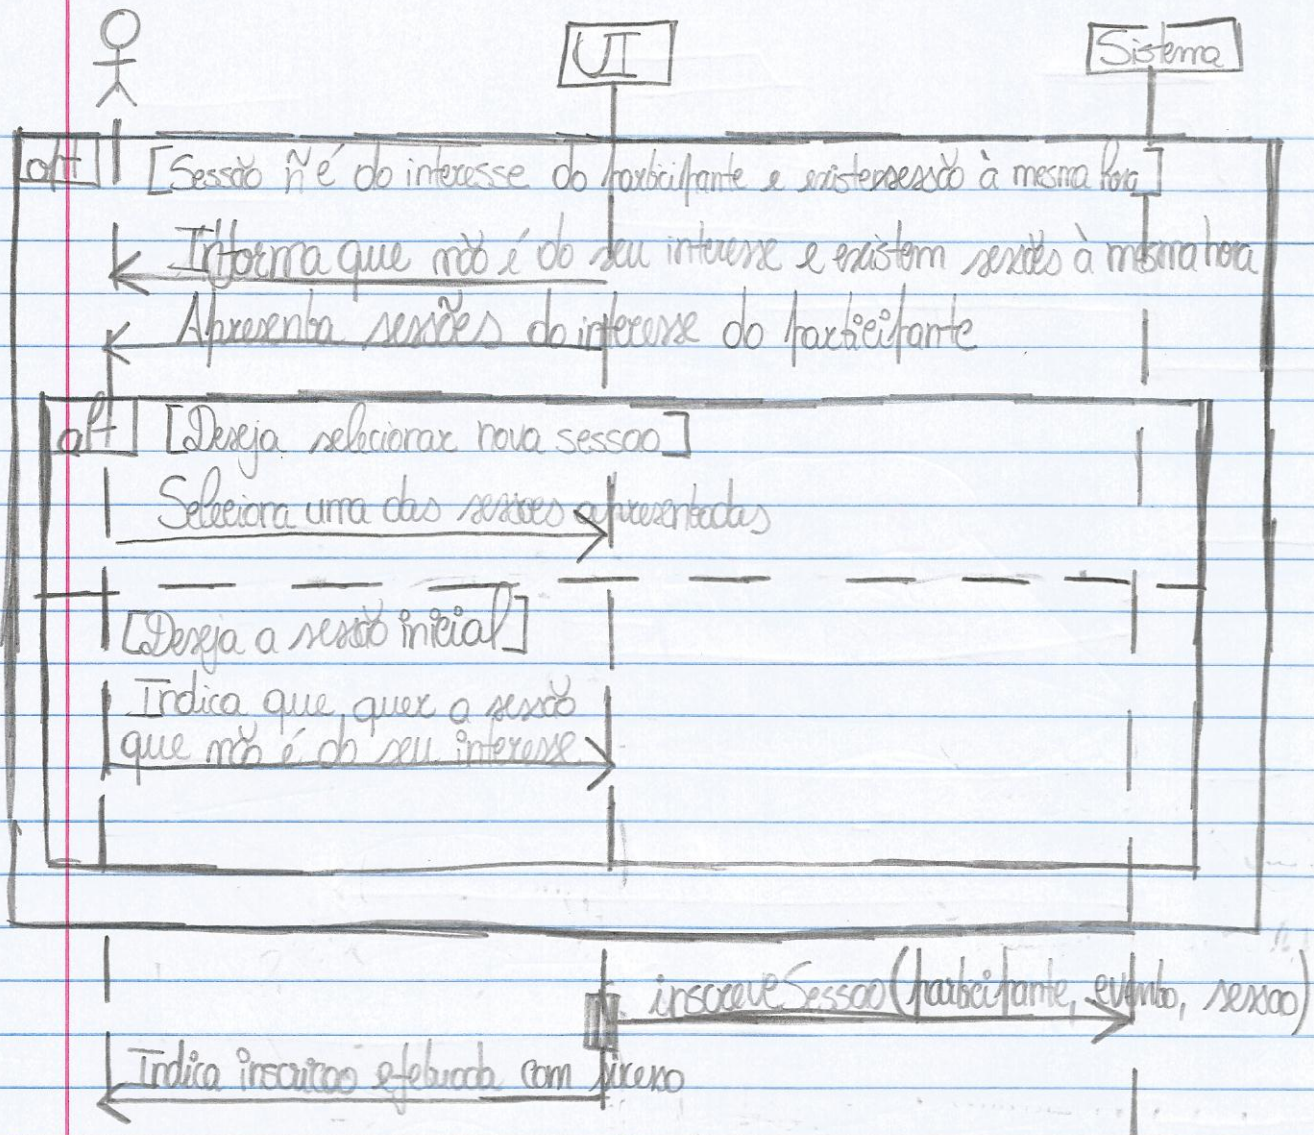 UI
Sistema
alt
[Sessão ñ é do interesse do participante e existem sessão à mesma hora]
Informa que não é do seu interesse e existem sessões à mesma hora
Apresenta sessões do interesse do participante
alt
[Deseja selecionar nova sessao]
Seleciona uma das sessoes apresentadas
[Deseja a sessão inicial]
Indica que quer a sessão
que não é do seu interesse
inscreveSessao(participante, evento, sessao)
Indica inscricao efetuada com sucesso